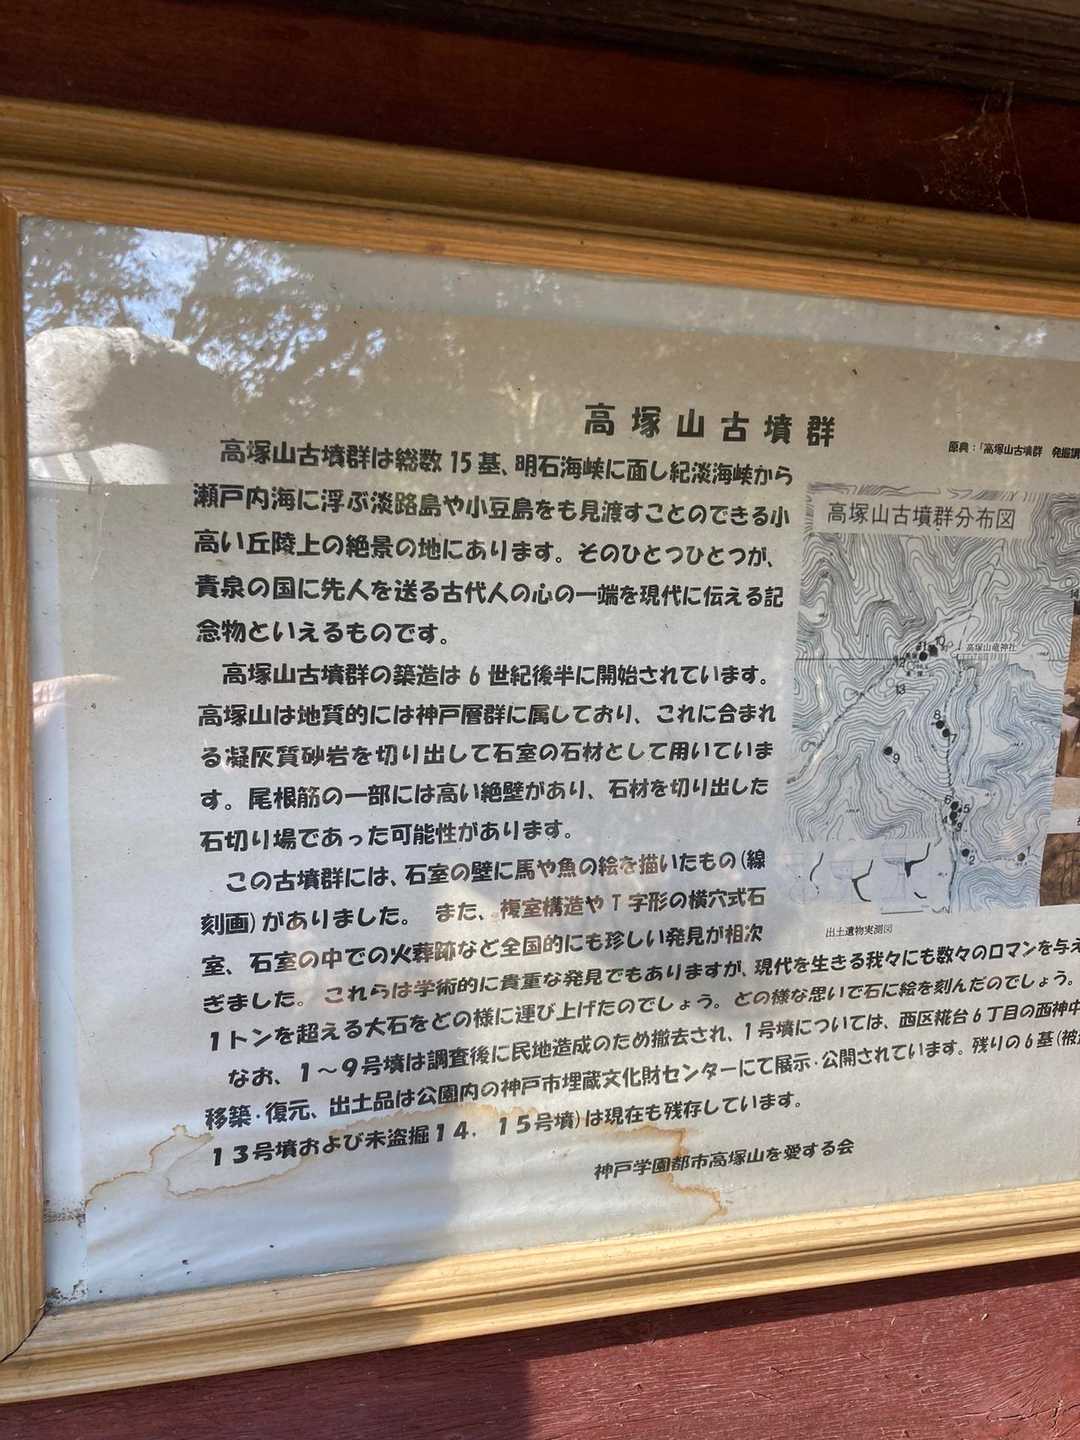 高塚山古墳群
原典：「高塚山古墳群 発掘調
高塚山古墳群は総数15基、明石海峡に面し紀淡海峡から
瀬戸内海に浮ぶ淡路島や小豆島をも見渡すことのできる小
高い丘陵上の絶景の地にあります。そのひとつひとつが、
黄泉の国に先人を送る古代人の心の一端を現代に伝える記
念物といえるものです。
高塚山古墳群の築造は6世紀後半に開始されています。
高塚山は地質的には神戸層群に属しており、これに含まれ
る凝灰質砂岩を切り出して石室の石材として用いていま
す。尾根筋の一部には高い絶壁があり、石材を切り出した
石切り場であった可能性があります。
この古墳群には、石室の壁に馬や魚の絵を描いたもの(線
刻画)がありました。 また、複室構造やT字形の横穴式石
室、石室の中での火葬跡など全国的にも珍しい発見が相次
ぎました。 これらは学術的に貴重な発見でもありますが、現代を生きる我々にも数々のロマンを与え
1トンを超える大石をどの様に運び上げたのでしょう。どの様な思いで石に絵を刻んだのでしょう。
なお、1～9号墳は調査後に民地造成のため撤去され、1号墳については、西区糀台6丁目の西神中
移築・復元、出土品は公園内の神戸市埋蔵文化財センターにて展示・公開されています。残りの6基(被
13号墳および未盗掘14，15号墳)は現在も残存しています。
神戸学園都市高塚山を愛する会
高塚山古墳群分布図
10
11
12
高塚山竜神社
13
14
8
7
9
6
5
4
3
2
1
出土遺物実測図